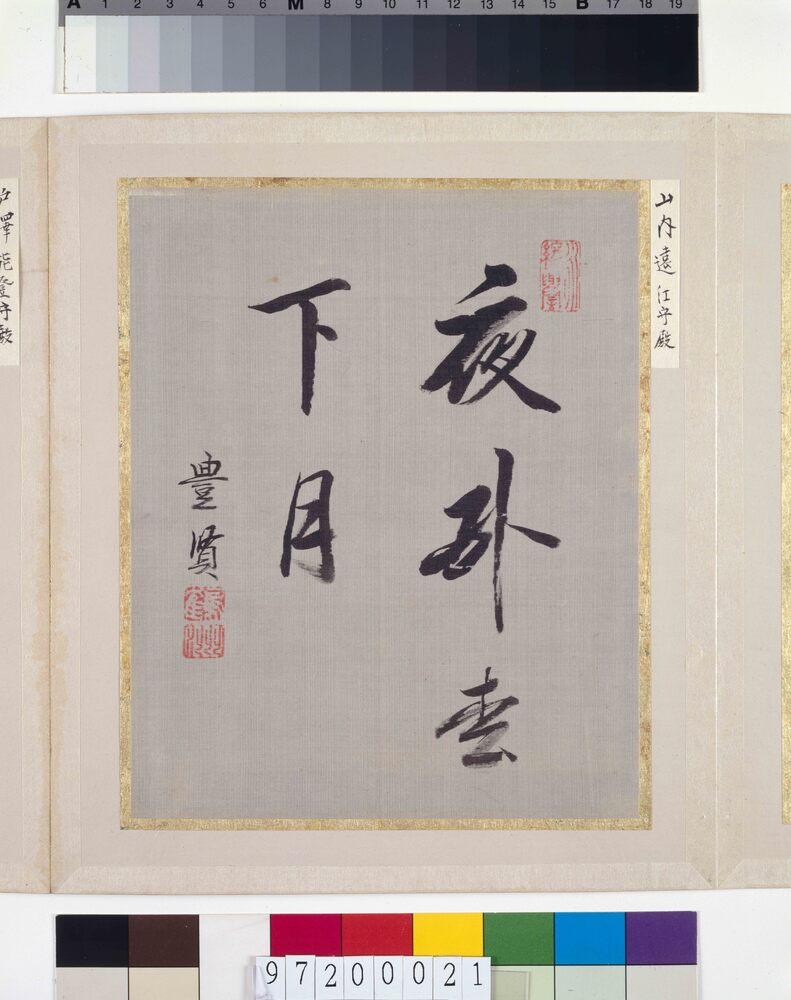 A 1 2 3 4 5 6 M 8 9 10 11 12 13 14 15 B 17 18 19
山内遠江守殿
夜卧枩
下月
豊賢
戸澤能登守殿
97200021